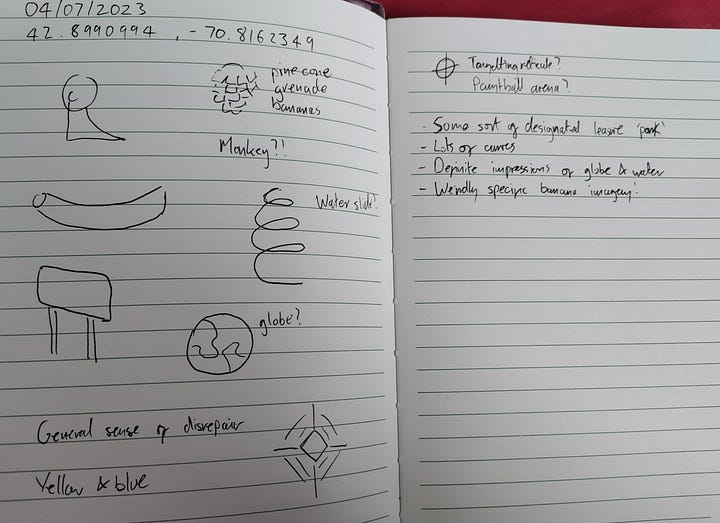 04/07/2023
42.8990994, -70.8162349
pine cone
grenade
bananas
Monkey?!
Water slide?
globe?
General sense of disrepair
Yellow & blue
Targetting reticule?
Paintball arena?
- Some sort of designated leasure 'park'
- Lots of curves
- Definite impressions of globe & water
- Weirdly specific banana imagery!